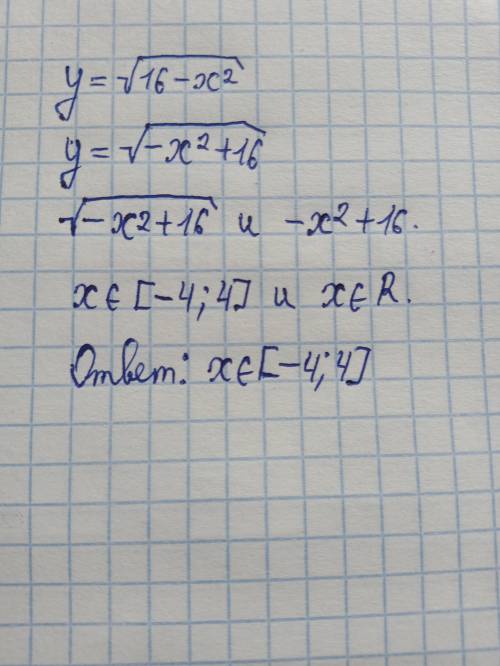 y = √16 - x²
y = √-x² + 16
√-x² + 16 и -x² + 16.
x ∈ [-4; 4] и x ∈ R.
Ответ: x ∈ [-4; 4]